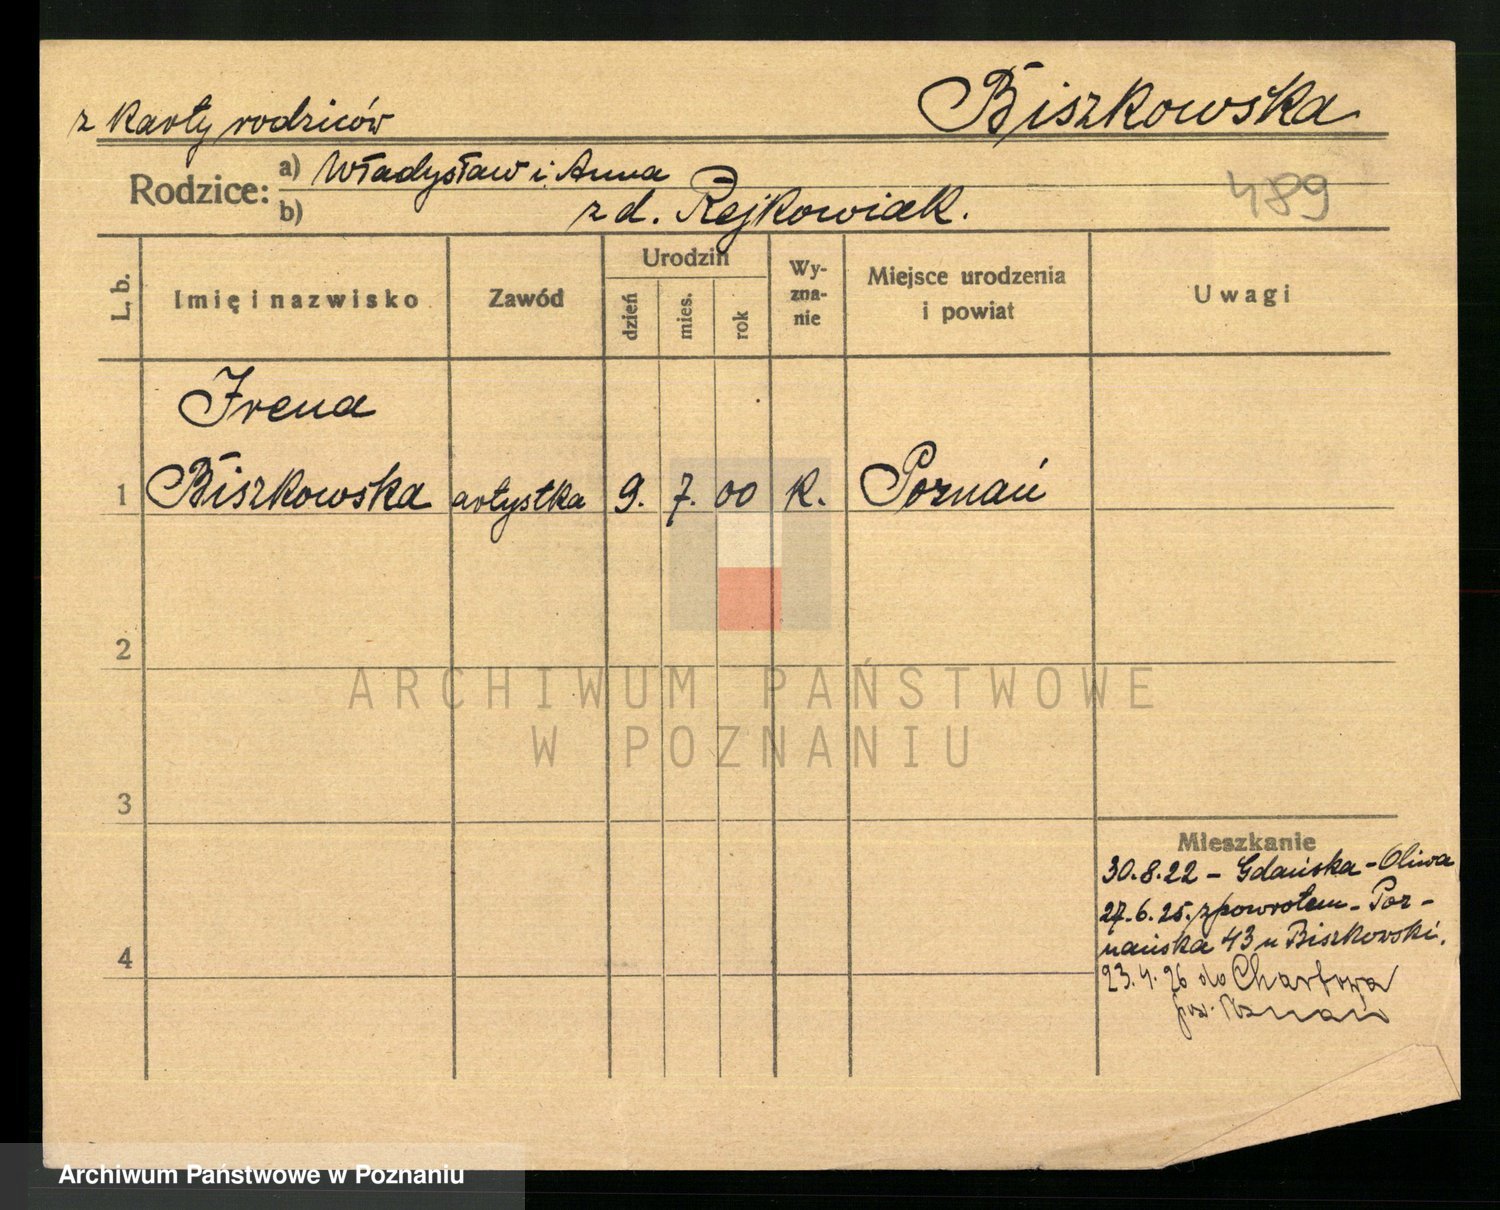 z karty rodziców
Biszkowska
Rodzice:
a) Władysław i Anna
b) z d. Rejkowiak.
489
L. b.
Imię i nazwisko
Zawód
Urodzin
dzień
mies.
rok
Wy-
zna-
nie
Miejsce urodzenia
i powiat
Uwagi
Irena
1 Biszkowska artystka 9. 7. 00 k. Poznań
2
ARCHIWUM PAŃSTWOWE
W POZNANIU
3
Mieszkanie
30.8.22 - Gdańska - Oliwa
27.6.25. z powrotem - Poz-
nańska 43 u Biszkowski.
4
23.4.26 do Chartowa
pow. Poznań
Archiwum Państwowe w Poznaniu